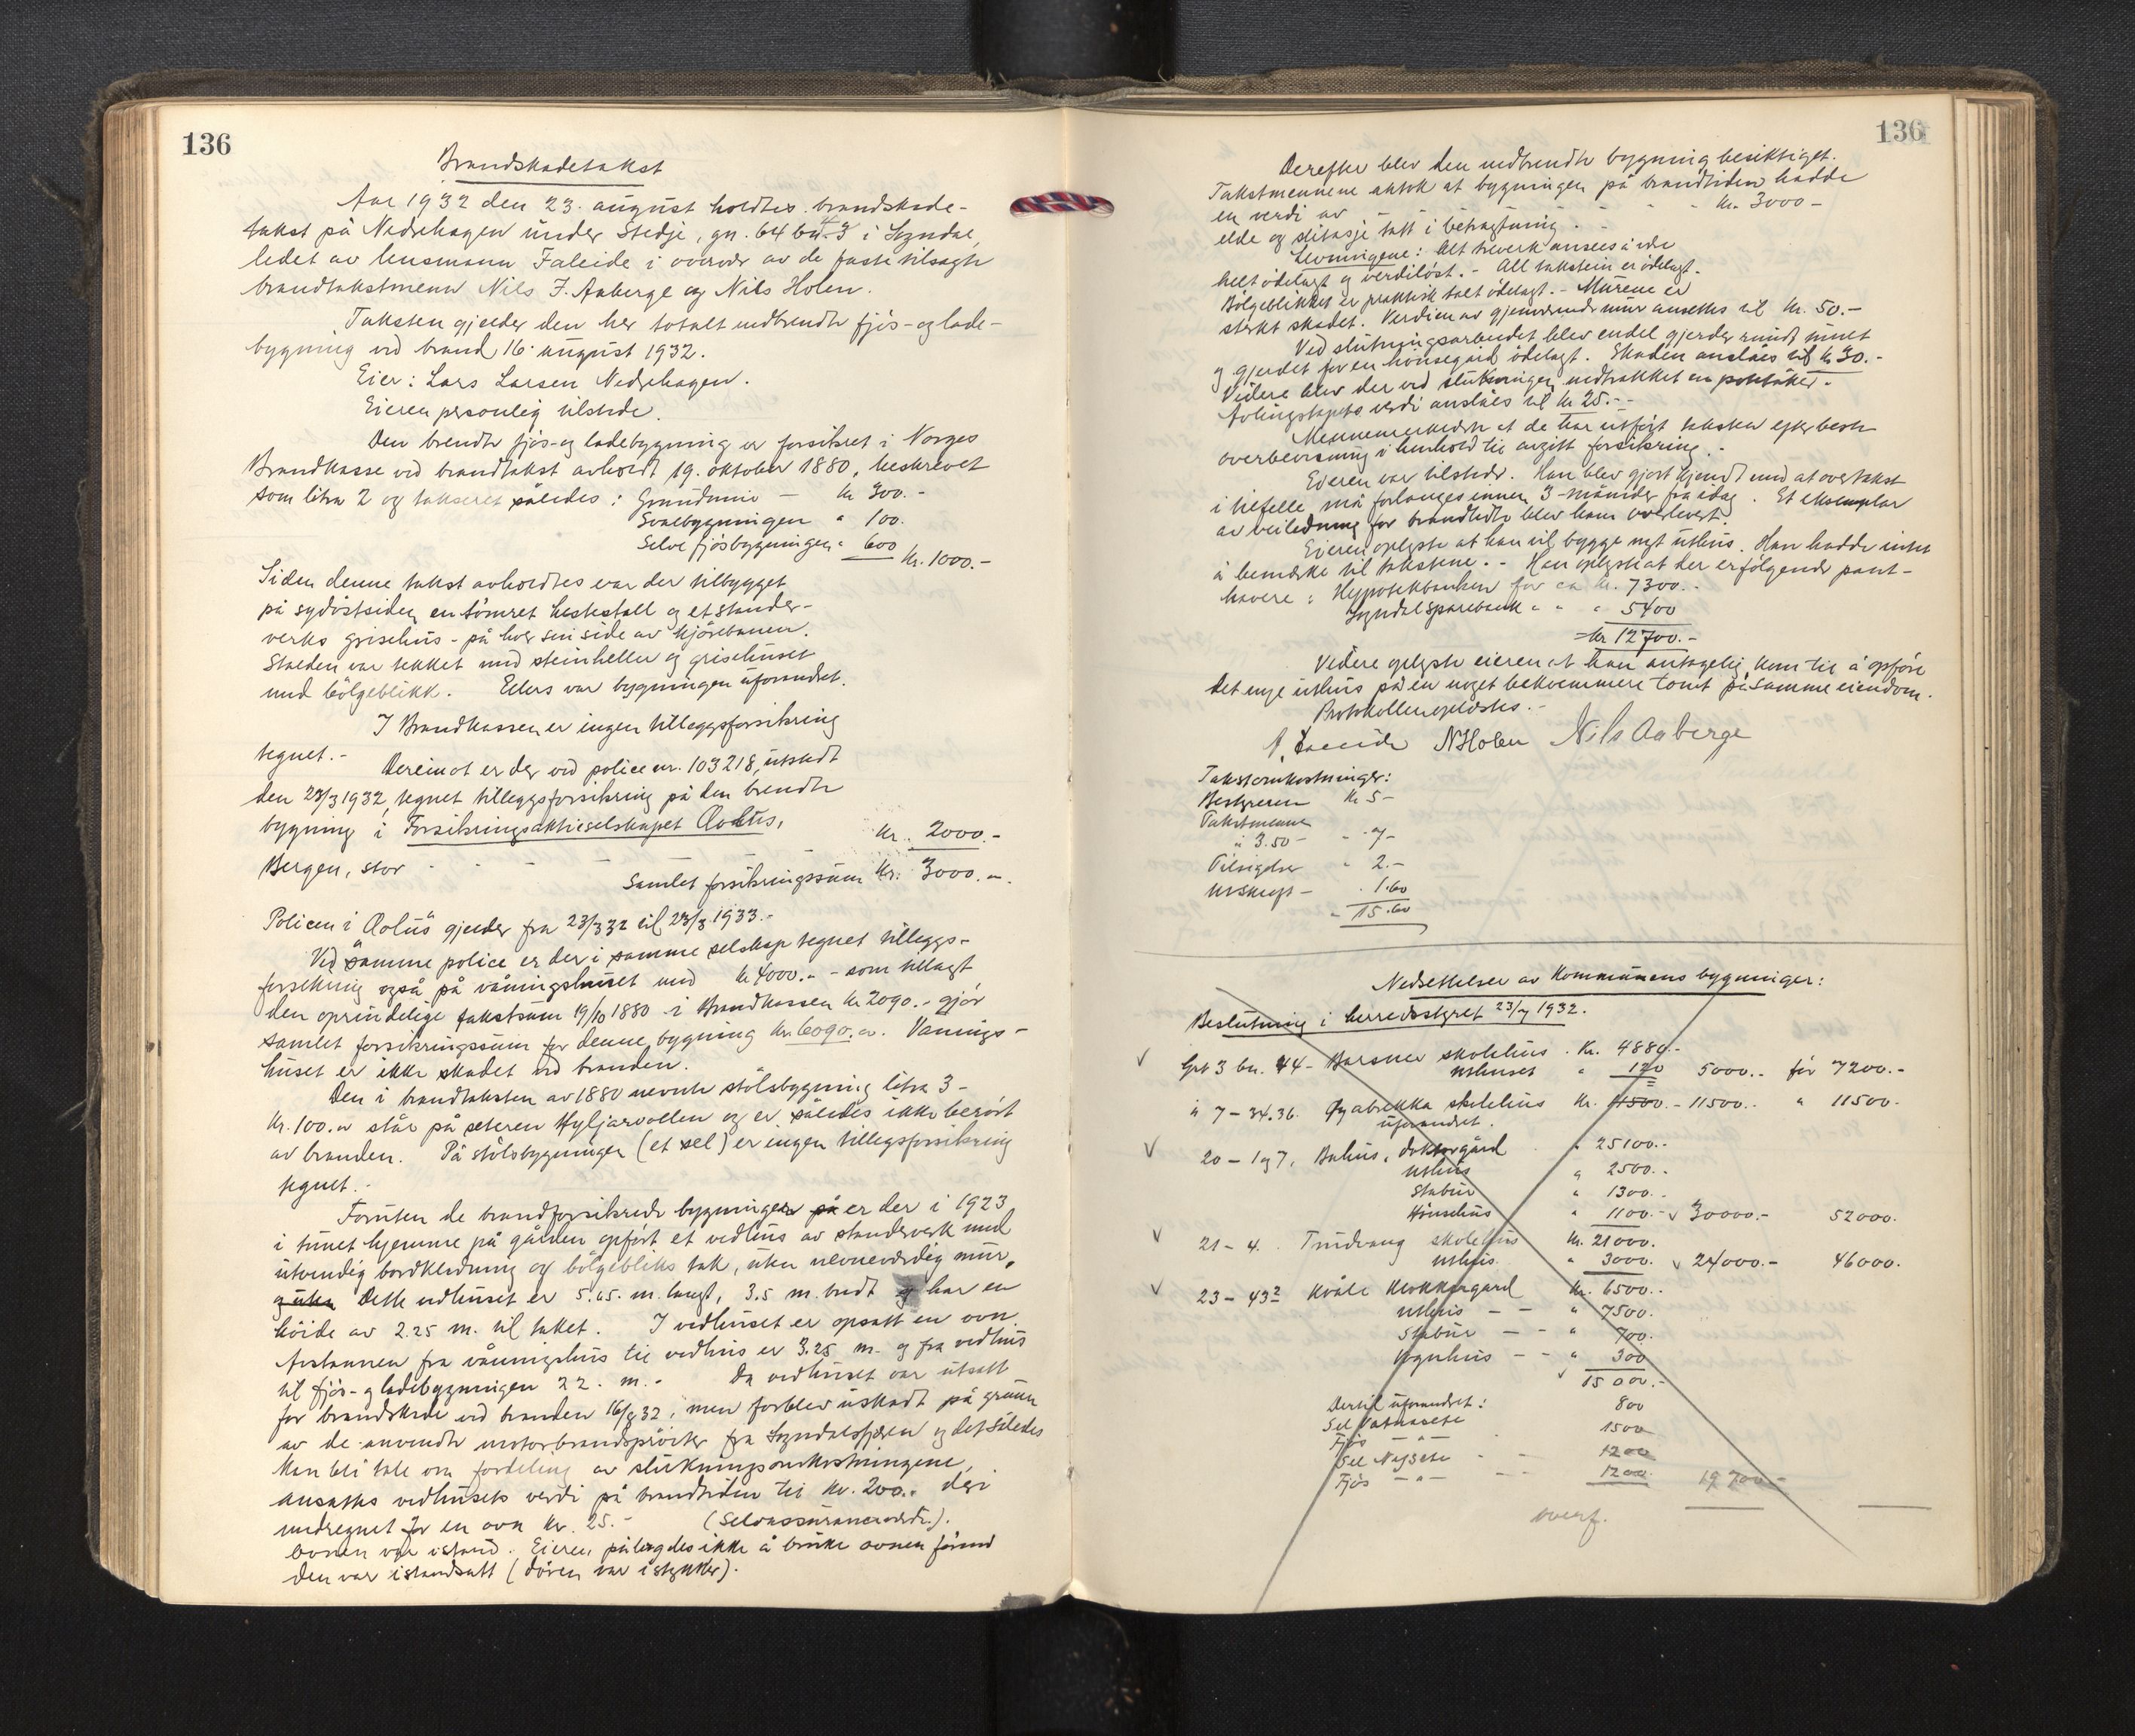 136
Brandskadetakst
Aar 1932 den 23. august holdtes brandskade-
takst på Nedrehagen under Stedje, gn. 64 bn. 3 i Sogndal,
ledet av lensmann Faleide i overvær av de faste tilsagte
brandtakstmenn Nils J. Aaberge og Nils Holen.
Taksten gjelder den her totalt nedbrendte fjøs- og lade-
bygning ved brand 16. august 1932.
Eier: Lars Larsen Nedrehagen.
Eieren personlig tilstede.
Den brendte fjøs- og ladebygning er forsikret i Norges
Brandkasse ved brandtakst avholdt 19. oktober 1880, beskrevet
som litra 2 og taksert således: Grundmur — kr 300.-
Svalebygningen " 100.
Selve fjøsbygningen " 600 Kr. 1000.-
Siden denne takst avholdtes var der tilbygget
på sydøstsiden en tømret hestestall og et stander-
verks grisehus - på hver sin side av kjørebanen.
Stallen var tekket med steinheller og grisehuset
med bølgeblikk. Ellers var bygningen uforandret.
I Brandkassen er ingen tilleggsforsikring
tegnet.- Derimot er der ved police nr. 103218, utstedt
den 23/3 1932, tegnet tilleggsforsikring på den brendte
bygning i Forsikringsaktieselskapet Æolus,
Bergen, stor - - - - kr. 2000.-
Samlet forsikringssum Kr. 3000.-
Policen i Æolus gjelder fra 23/3 32 til 23/3 1933.-
Ved samme police er der i samme selskap tegnet tilleggs-
forsikring også på våningshuset med kr 4000.- - som tillagt
den oprindelige takstsum 19/10 1880 i Brandkassen kr 2090.- gjør
samlet forsikringssum for denne bygning kr. 6090.-. Vånings-
huset er ikke skadet ved branden.
Den i brandtaksten av 1880 nevnte stølsbygning litra 3 -
Kr. 100.- står på seteren Hyljarvollen og er således ikke berørt
av branden. På stølsbygningen (et sel) er ingen tilleggsforsikring
tegnet.-
Foruten de brandforsikrede bygninger på er der i 1923
i tunet hjemme på gården opført et vedhus av standerverk med
utvendig bordkledning og bølgebliks tak, uten nevneverdig mur,
og uten Dette vedhuset er 5.65. m. langt, 3.5 m. bredt og har en
høide av 2.25 m. til taket. I vedhuset er opsatt en ovn.
Avstannen fra våningshus til vedhus er 3.25 m. og fra vedhus
til fjøs- og ladebygningen 22. m.- Da vedhuset var utsatt
for brandskade ved branden 16/8 32, men forblev uskadt på grunn
av de anvendte motorbrandsprøiter fra Sogndalsfjøren og det således
kan bli tale om fordeling av slukningsomkostningene,
ansattes vedhusets verdi på brandtiden til kr. 200.- deri
medregnet for en ovn kr. 25.- (Selvassuranceverdi).
Ovnen var istand. Eieren pålagdes ikke å bruke ovnen førend
den var istandsatt (døren var istykker).
136
Derefter blev den nedbrendte bygning besiktiget.
Takstmennene antok at bygningen på brandtiden hadde
en verdi av - - - - kr. 3000-
elde og slitasje tatt i betragtning.
Levningene: Alt treverk ansees å være
helt ødelagt og verdiløst.- All takstein er ødelagt.
Bølgeblikket er praktisk talt ødelagt.- Murene er
sterkt skadet. Verdien av gjenværende mur ansettes til kr. 50.-
Ved slukningsarbeidet blev endel gjerder rundt tunet
og gjerdet for en hønsegård ødelagt. Skaden anslåes til kr 30.-
Videre blev der ved slukningen nedtrakket en potetåker.
Avlingstapets verdi anslåes til kr 25.-
Mennene erklærte at de har utført taksten efter beste
overbevisning i henhold til avgitt forsikring.-
Eieren var tilstede. Han blev gjort kjendt med at overtakst
i tilfelle må forlanges innen 3 måneder fra idag. Et eksemplar
av veiledning for brandlidte blev ham overlevert.
Eieren oplyste at han vil bygge nyt uthus. Han hadde intet
å bemerke til takstene.- Han oplyste at der er følgende pant-
havere: Hypotekbanken for ca kr. 7300.-
Sogndal Sparebank " " " 5400
kr 12700.-
Videre oplyste eieren at han antagelig kom til å opføre
det nye uthus på en noget bekvemmere tomt på samme eiendom.
Protokollen oplæstes.-
Faleide N Holen Nils Aaberge
Takstomkostninger:
Bestyreren Kr 5-
Takstmenne
à 3.50 - - 7-
Tilsigelse " 2.-
Utskrift - 1.60
15.60
Nedsettelser av Kommunens bygninger:
Beslutning i herredsstyret 23/7 1932.
Gn 3 bn. 44 - Barsnes skolehus. Kr. 4880.-
Uthuset " 120 5000.- før 7200.-
" 7 - 34.36. skolehus Kr. 11500. - 11500.- " 11500.-
uforandret.
20 - 1 og 7. Buhus, doktorgård " 25100.-
Uthus " 2500.-
Stabur " 1300.-
Hønsehus " 1100.- 30000.- 52000.
21 - 4. Trudvang skolehus Kr. 21000.
Uthus. " 3000. 24000.- 46000.
23 - 43² Kvåle Klokkergard Kr. 6500.-
Uthus — - " 7500.
Stabur — - " 700.
Vognhus — - " 300
15000.-
Dertil uforandret:
Sel Vatnasete 800
Fjøs - " - 1500
Sel Nysete - - 1200
Fjøs - " - - - 1200 19700.-
overf.